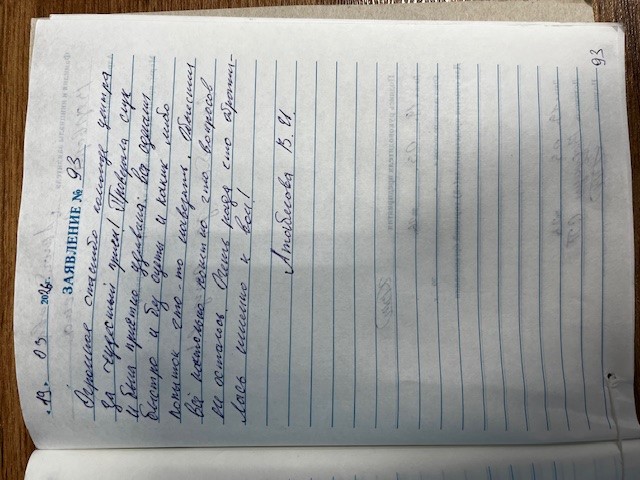 «19» 03 2026г.
ЗАЯВЛЕНИЕ № 93
Огромное спасибо команде центра
за чудесный прием! Проверила слух
и была приятно удивлена: все сделали
быстро и без суеты и каких либо
попыток что-то навязать. Объяснили
всё настолько понятно что вопросов
не осталось. Очень рада что обрати-
лась именно к вам!
93